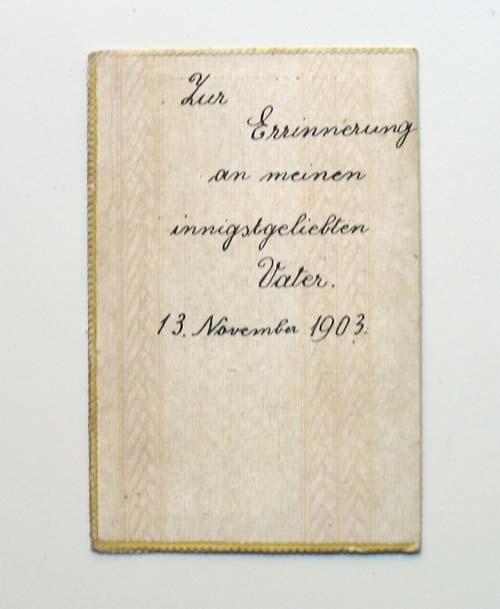 Zur
Errinnerung
an meinen
innigstgeliebten
Vater.
13. November 1903.